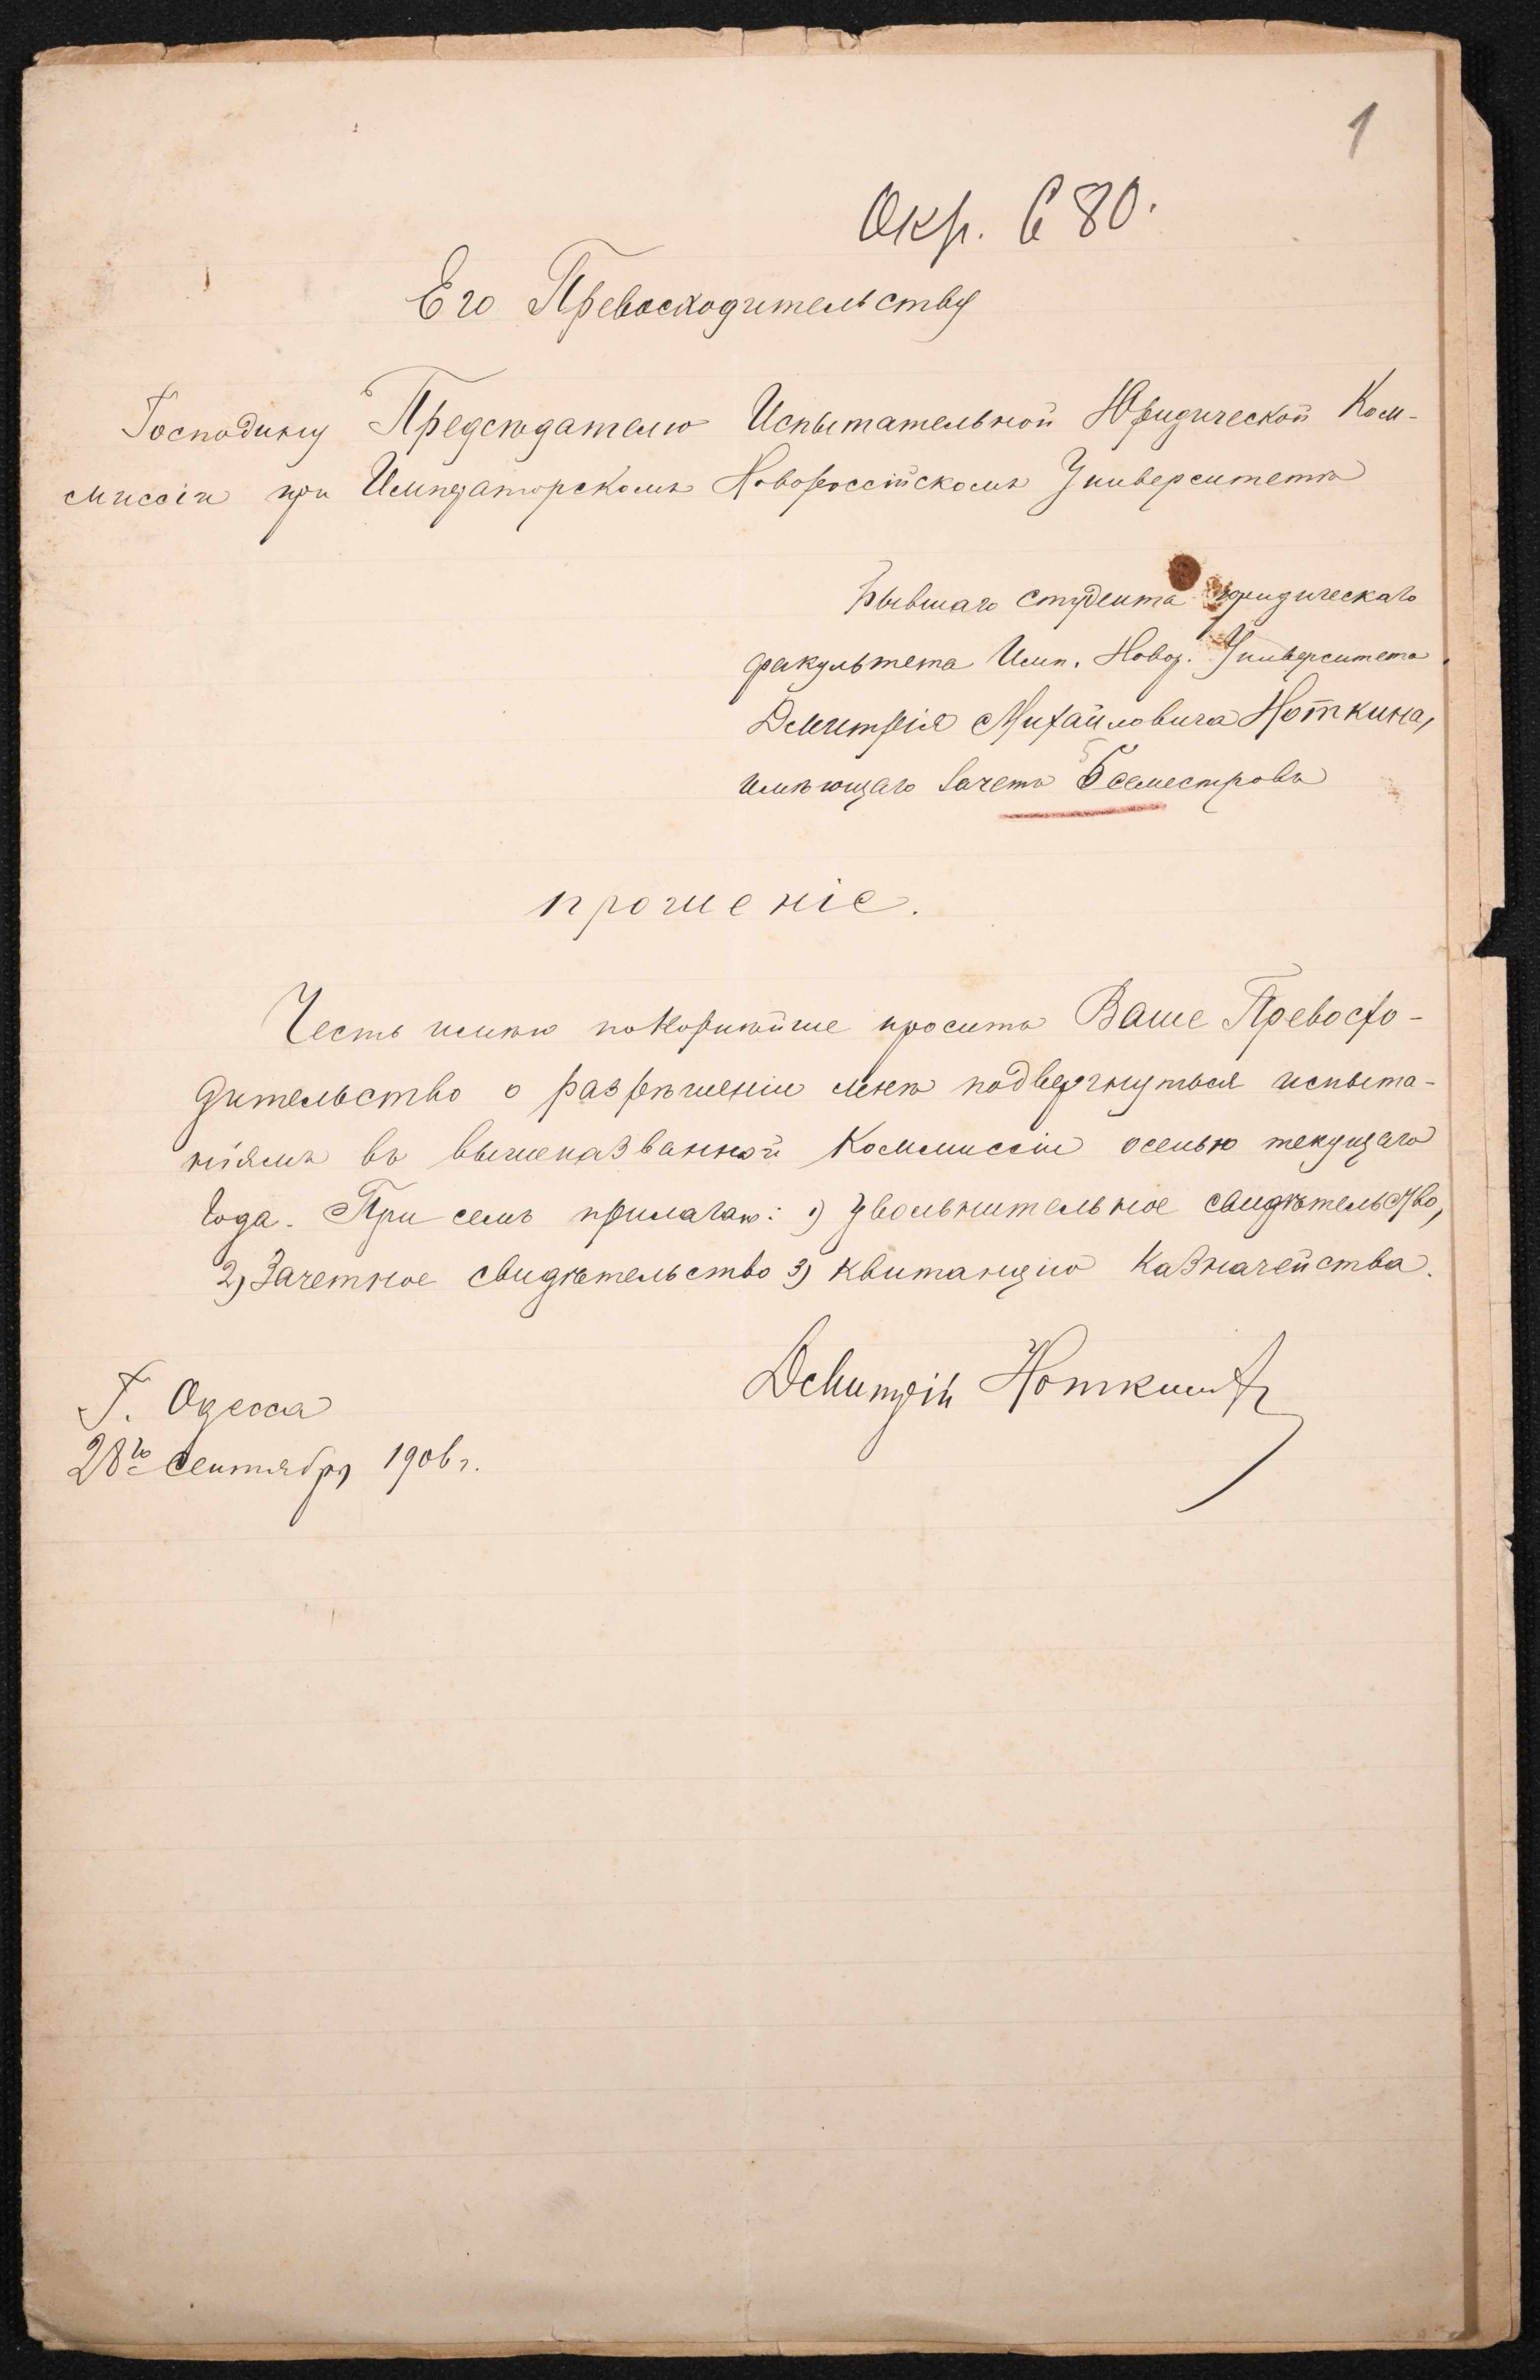 1
Окр. 680.
Его Превосходительству
Господину Предсѣдателю Испытательной Юридической Ком-
миссіи при Императорскомъ Новороссійскомъ Университетѣ
бывшаго студента юридическаго
факультета Имп. Новор. Университета
Дмитрія Михайловича Ноткина,
имѣющаго зачетъ семестровъ
прошеніе.
Честь имѣю покорнѣйше просить Ваше Превосхо-
дительство о разрѣшеніи мнѣ подвергнуться испыта-
ніямъ въ вышеназванной Коммиссіи осенью текущаго
года. При семъ прилагаю: 1) увольнительное свидѣтельство,
2) Зачетное свидѣтельство 3) квитанцію Казначейства.
Дмитрій Ноткинъ
Г. Одесса
28го Сентября 1906 г.